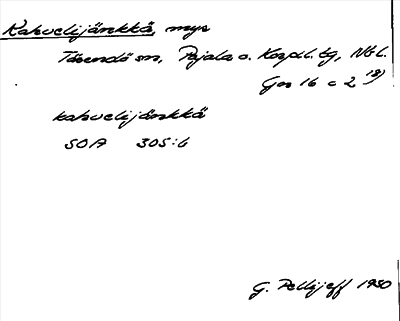 Kahvelijänkkä, myr
Tärendö sn, Pajala o. Korpil. tg, Nb l.
Ger 16 c 2 18)
kahvelijänkkä
SOA 305:6
G. Pellijeff 1950